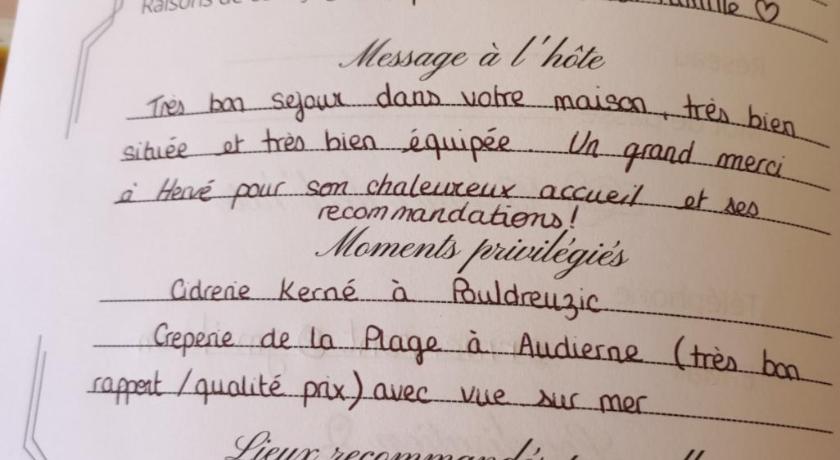 Raisons de
famille ♡
Message à l'hôte
Très bon sejour dans votre maison, très bien
située et très bien équipée. Un grand merci
à Hervé pour son chaleureux accueil et ses
recommandations!
Moments privilégiés
Cidrerie Kerné à Pouldreuzic
Creperie de la Plage à Audierne (très bon
rapport /qualité prix) avec vue sur mer
Lieux